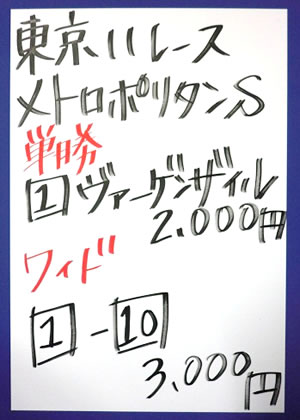 東京11レース
メトロポリタンS
単勝
1 ヴァーゲンザイル
2.000円
ワイド
1-10
3.000円